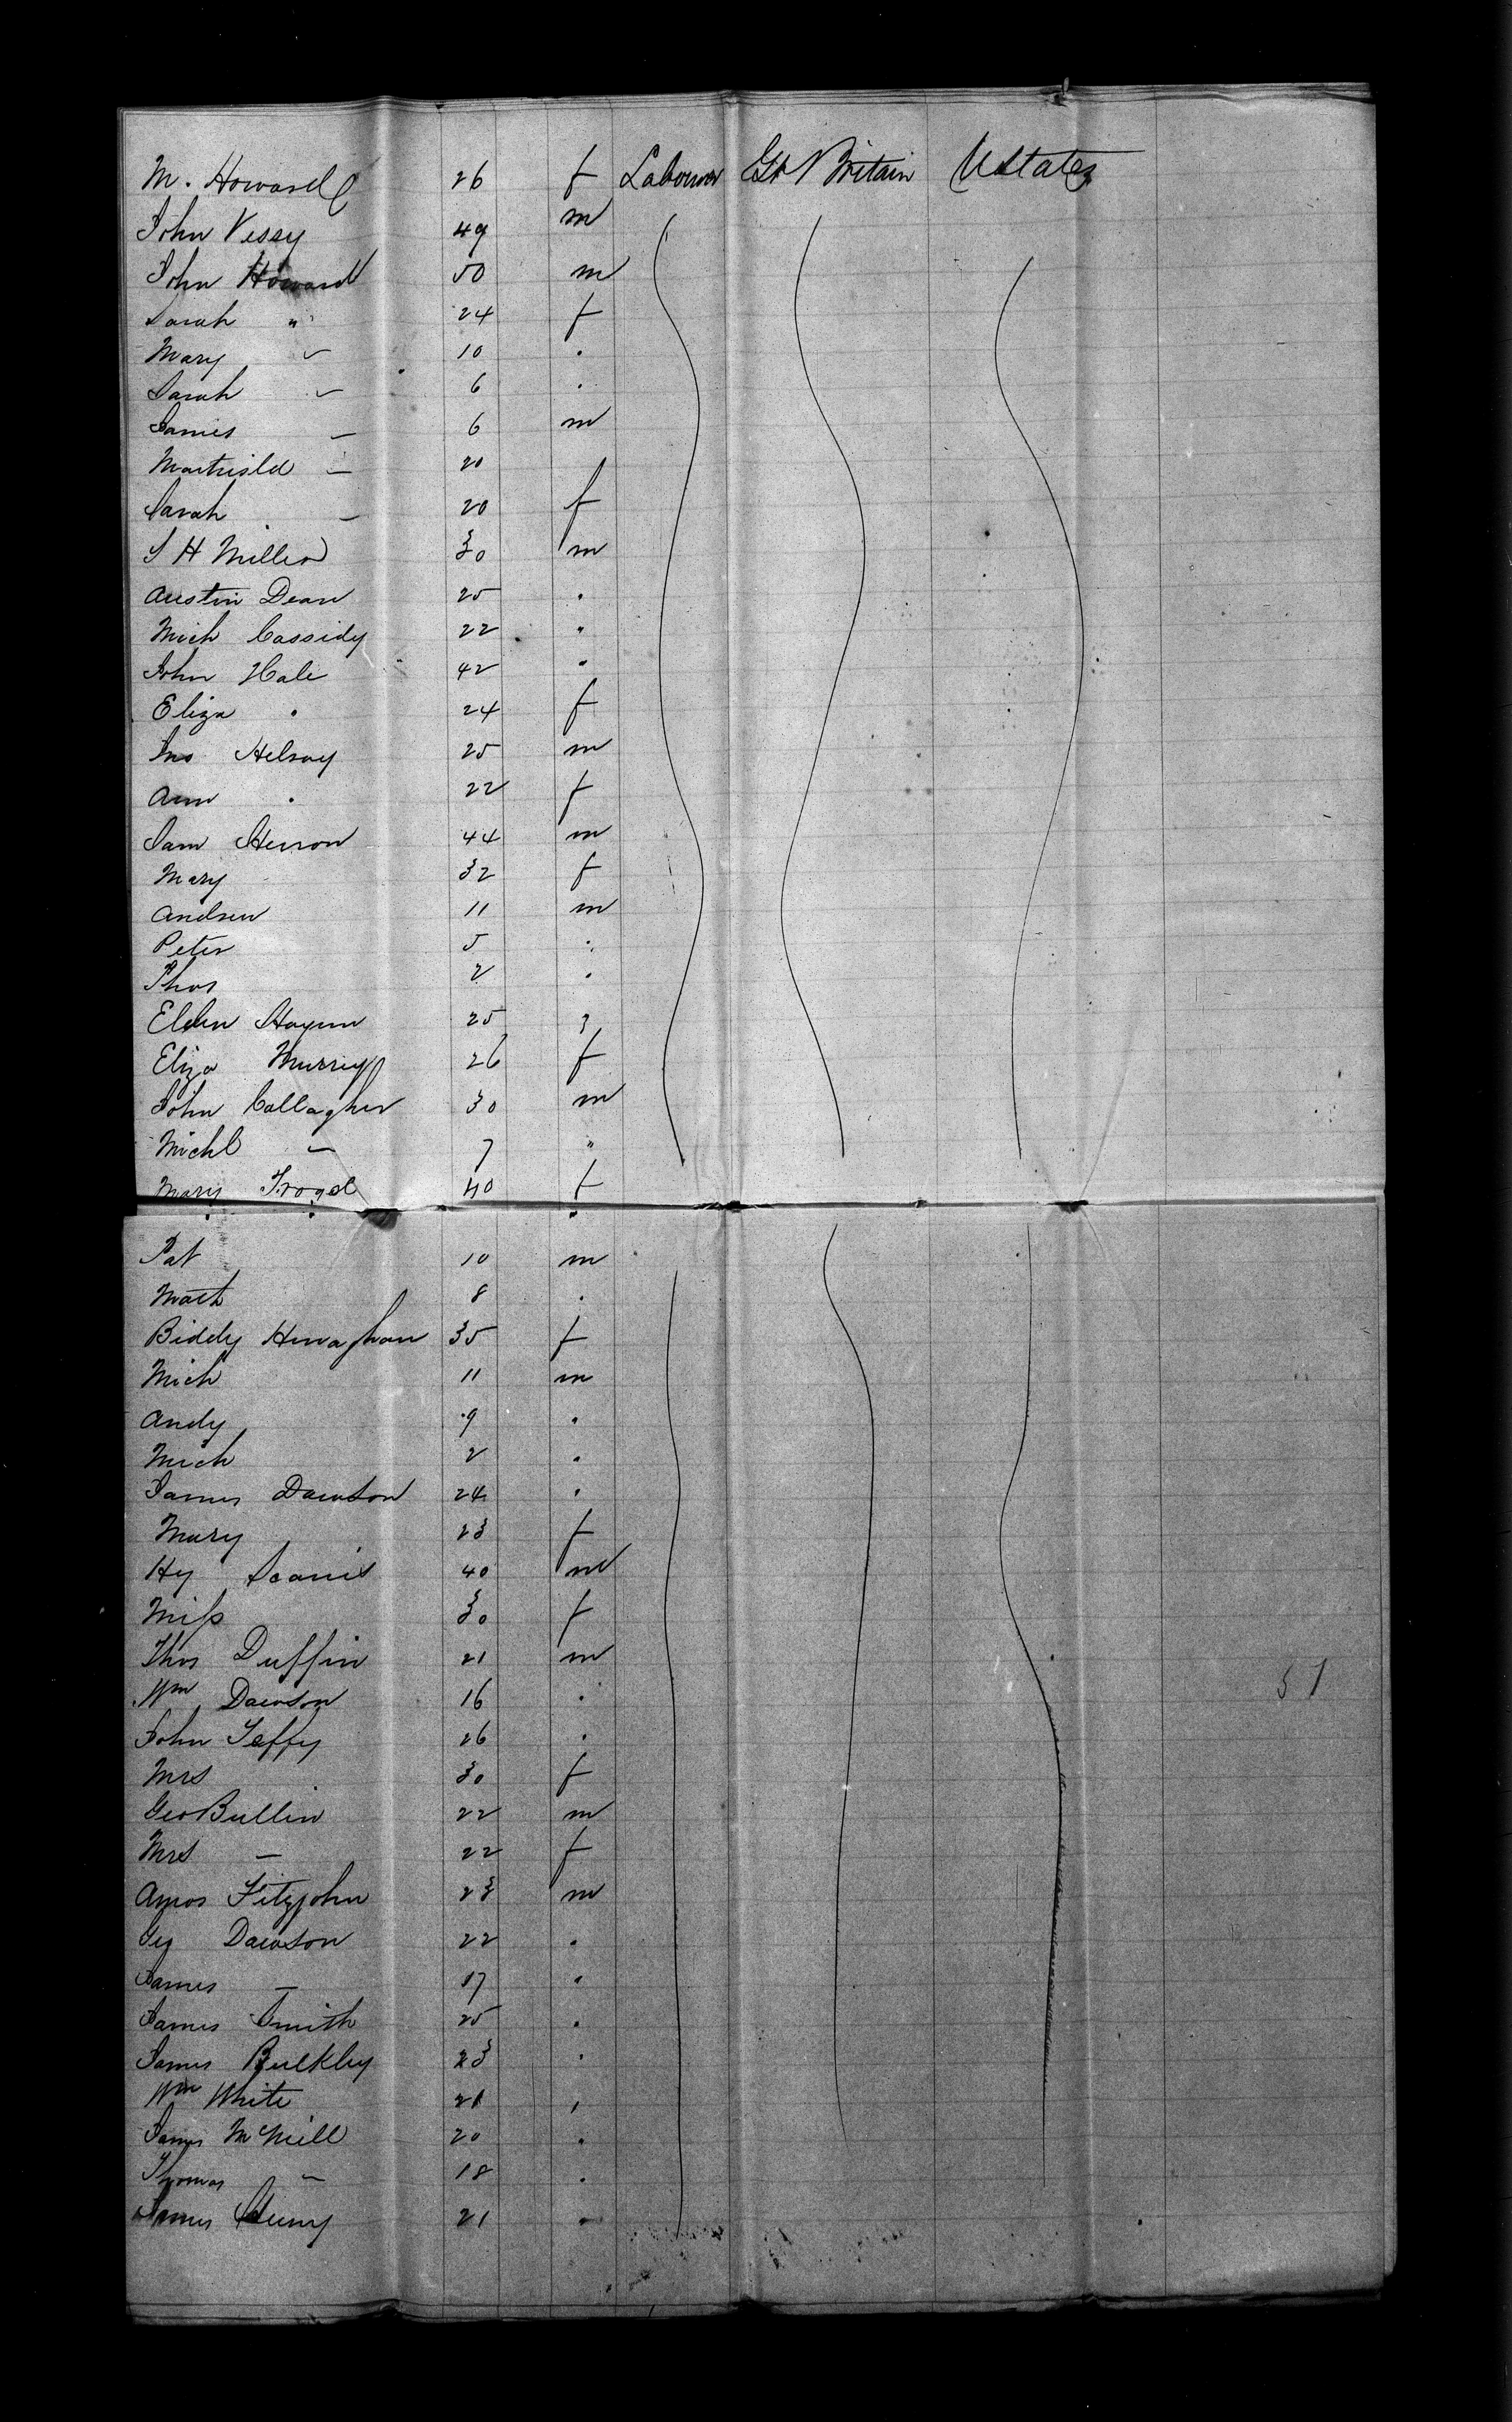 M. Howard 26 f Labourer Gt Britain UStates
John Vesey 49 m
John Howard 50 m
Sarah " 24 f
Mary - 10 .
Sarah - 6 .
James - 6 m
- 20
Sarah - 20 f
S H Miller 30 m
Austin Dean 25 .
Mich Cassidy 22 "
John Hale 42 "
Eliza . 24 f
Jno 25 m
Ann . 22 f
Sam Herron 44 m
Mary 32 f
Andrew 11 m
Peter 5 .
Thos 2 .
Ellen 25
Eliza Murray 26 f
John Callagher 30 m
Michl - 7 "
Mary 40 f
Pat 10 m
Matt 8 .
Biddy Henaghan 35 f
Mich 11 m
Andy 9 .
Mich 2 .
James Dawson 24 .
Mary 23 f
Hy 40 m
Miss 30 f
Thos Duffin 21 m
Wm Dawson 16 .
John Jeffy 26 .
Mrs 30 f
Geo Bullin 22 m
Mrs - 22 f
Amos Fitzjohn 23 m
Dawson 22 .
James - 17 .
James Smith 25 .
James Bulkley 23 .
Wm White 21 ,
James McNeill 20 .
Thomas - 18 .
James 21 .